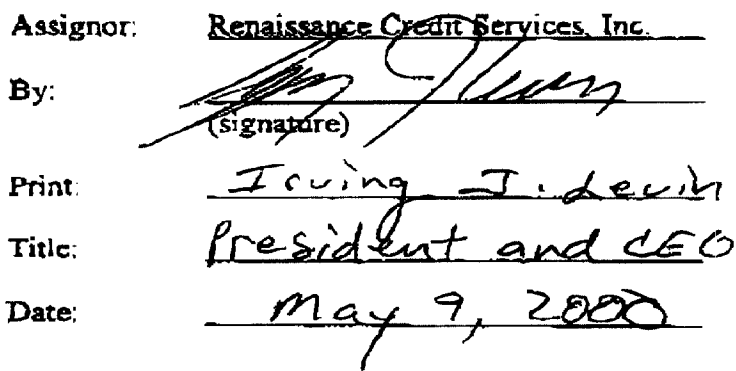 Assignor: Renaissance Credit Services, Inc.
By:
(signature)
Print: Irving J. Levin
Title: President and CEO
Date: May 9, 2000